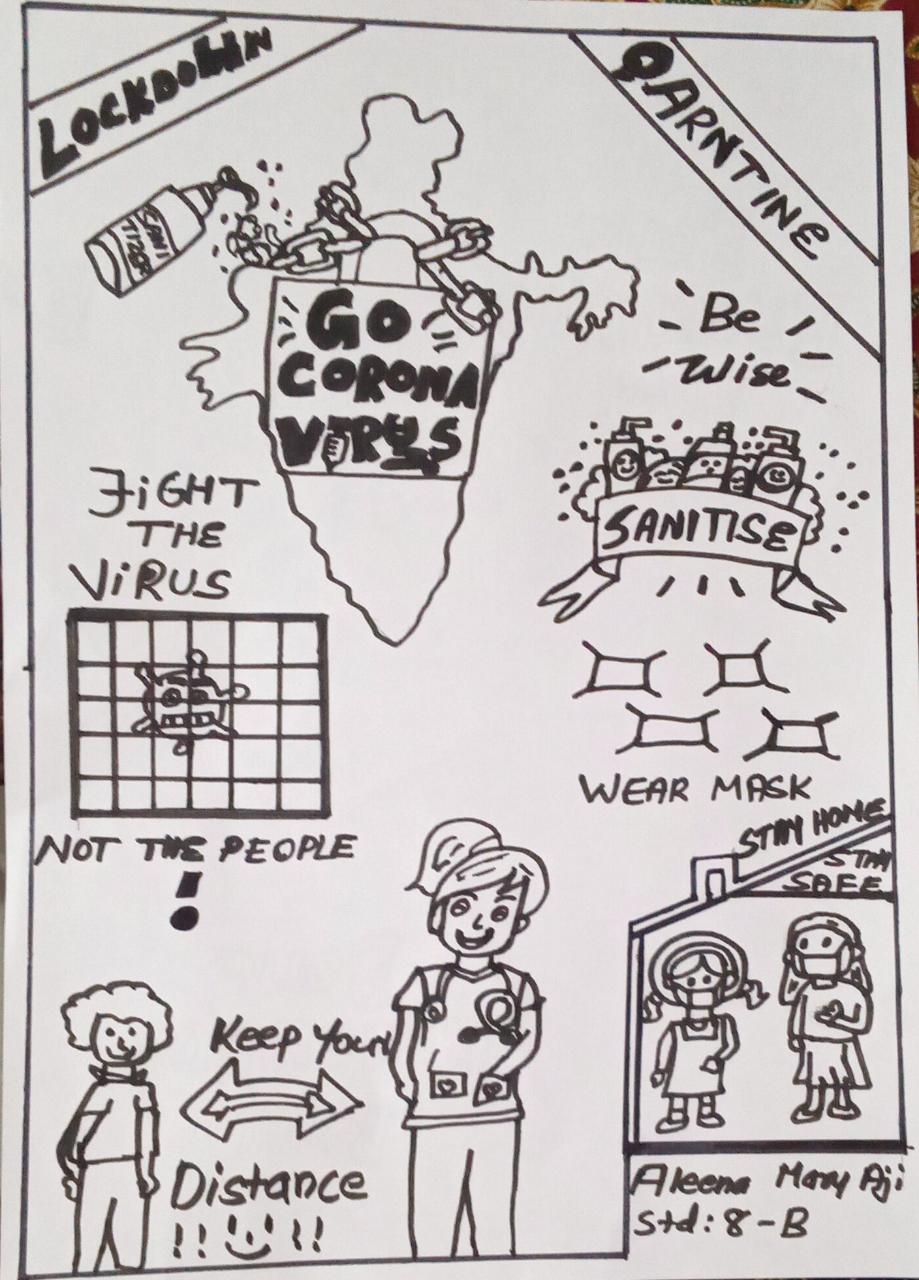 LOCKDOWN
QARNTINE
SANI
TIZER
GO
CORONA
VIRUS
Be
Wise
SANITISE
FiGHT
THE
ViRUS
NOT THE PEOPLE
!
WEAR MASK
STAY HOME
STAY
SAFE
Keep Your
Distance
!! !!
Aleena Mary Aji
Std: 8-B